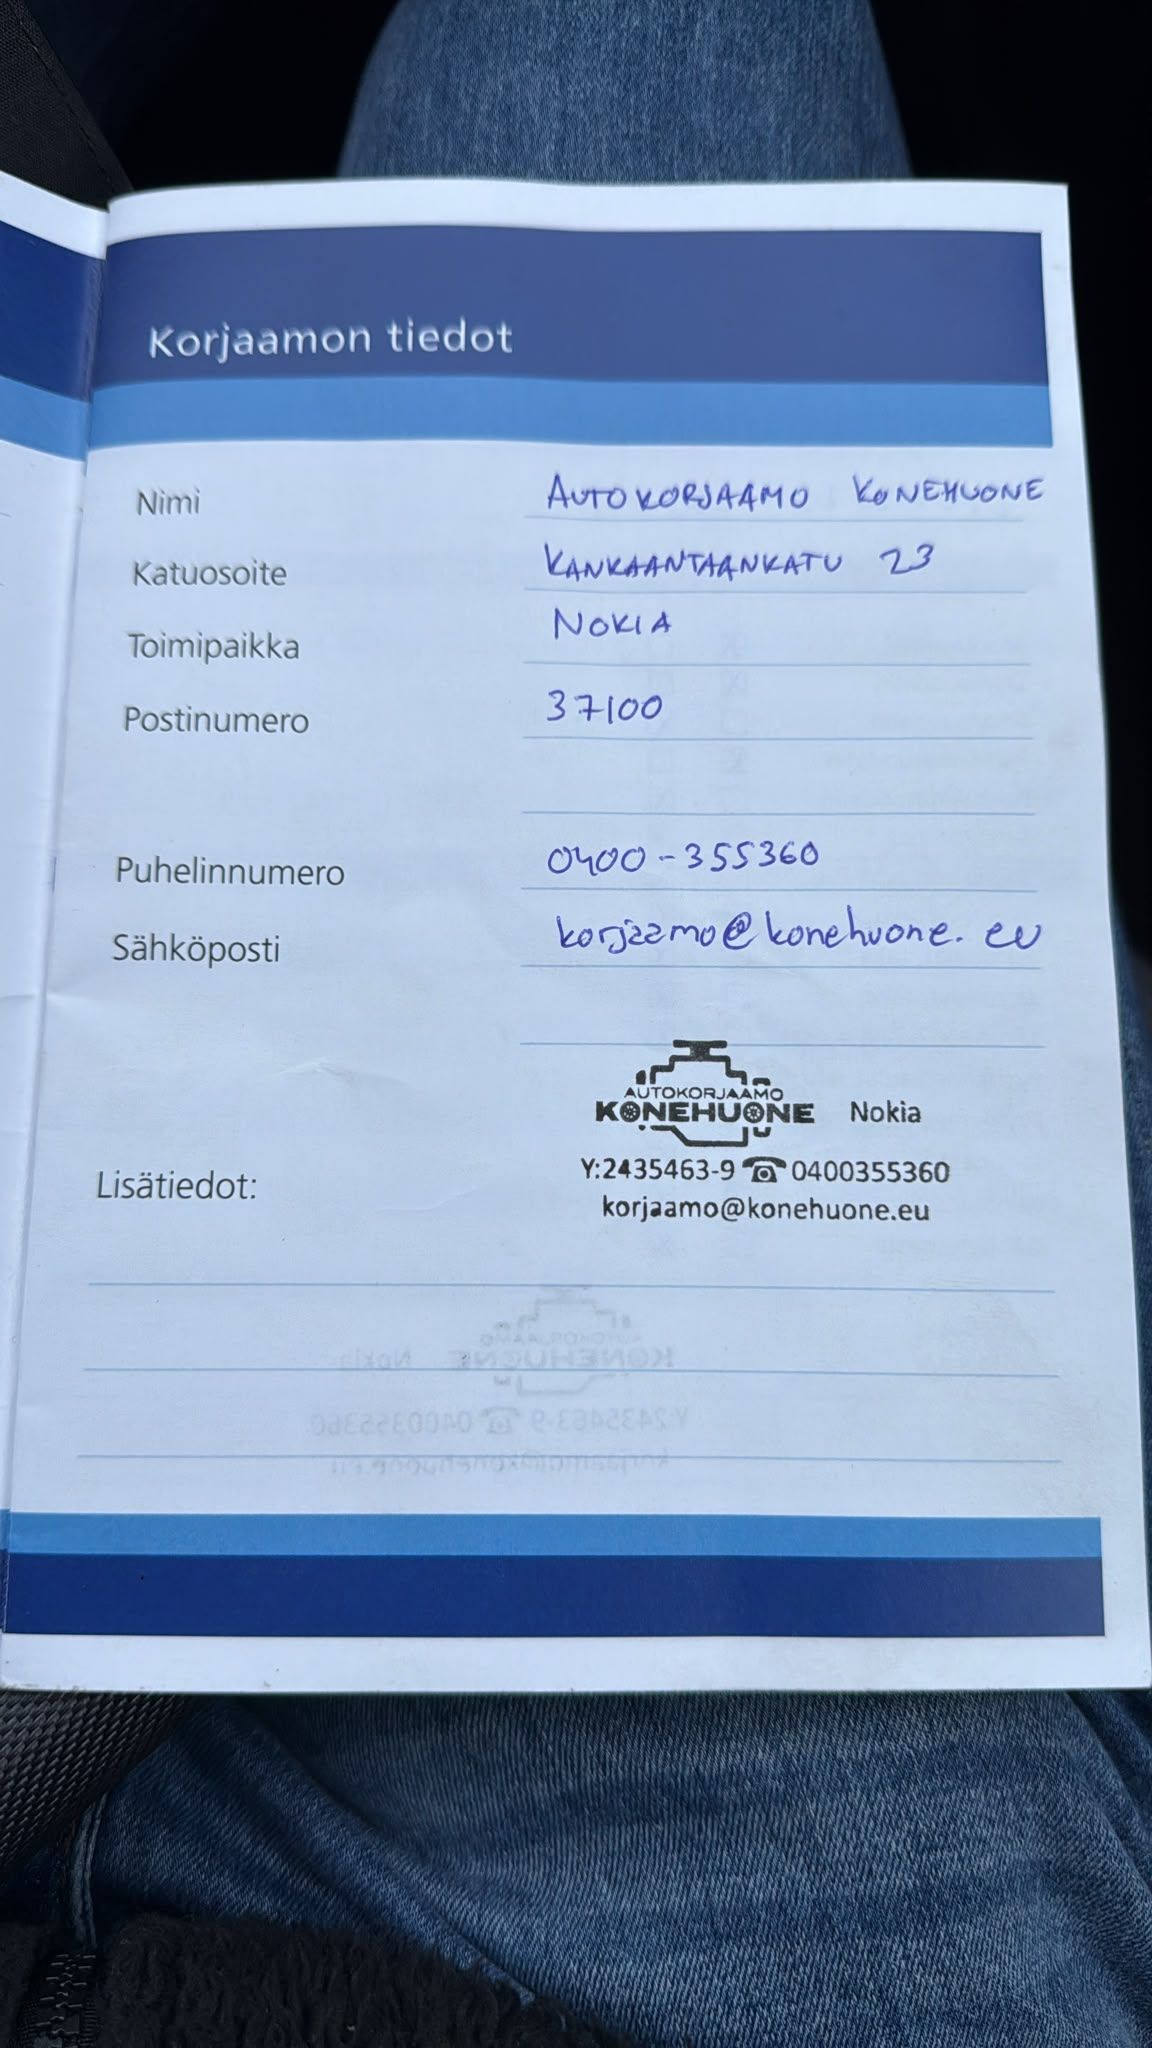 Korjaamon tiedot
Nimi AUTOKORJAAMO KONEHUONE
Katuosoite KANKAANTAANKATU 23
Toimipaikka NOKIA
Postinumero 37100
Puhelinnumero 0400-355360
Sähköposti korjaamo@konehuone.eu
AUTOKORJAAMO
KONEHUONE Nokia
Y:2435463-9 ☎ 0400355360
Lisätiedot:
korjaamo@konehuone.eu